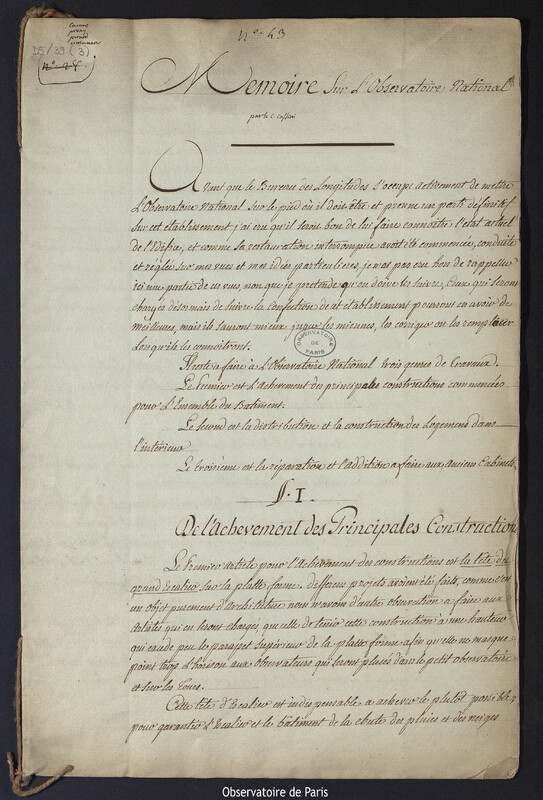 n°. 43
D5/39 (3)
n°. 25
Memoire Sur L'Observatoire National
par le C. Cassini
Avant que le Bureau des Longitudes S'occupe activement de mettre
L'Observatoire National sur le pied où il doit être et prenne un parti définitif
sur cet établissement j'ai cru qu'il seroit bon de lui faire connoitre l'état actuel
de l'Edifice, et comme sa restauration interrompue avoit été commencée, conduite
et réglée sur mes vues et mes idées particulieres, je n'ai pas cru hors de rappeller
ici une partie de ces vues, non que je pretende qu'on doive les suivre, Ceux qui seront
chargés désormais de suivre la Confection de cet etablissement pourront en avoir de
meilleures, mais ils sauront mieux juger les miennes, les corriger ou les remplacer
Lorsqu'ils les connoitront.
OBSERVATOIRE DE PARIS
Il reste a faire à L'Observatoire National trois genres de travaux.
Le Premier est L'Achevement des principales constructions commencées
pour L'Ensemble du Batiment.
Le Second est la distribution et la construction des Logemens dans
l'intérieur
Le troisième est la réparation et l'addition a faire aux anciens Cabinets
§. I.
De L'Achevement des Principales Constructions
Le Premier Article pour l'Achevement des constructions est la tête du
grand Escalier sur la platte forme. differens projets avoient été faits, comme c'est
un objet purement d'Architecture nous n'avons d'autre observation a faire aux
Artistes qui en seront chargés, que celle de tenir cette construction à une hauteur
qui excede peu le parapet Supérieur de la platte forme afin qu'elle ne masque
point trop d'horison aux Observateurs qui seront placés dans le petit observatoire
et sur les Tours.
Cette tête d'Escalier est indispensable a achever le plutôt possible
pour garantir L'Escalier et le bâtiment de la chute des pluies et des neiges
Observatoire de Paris